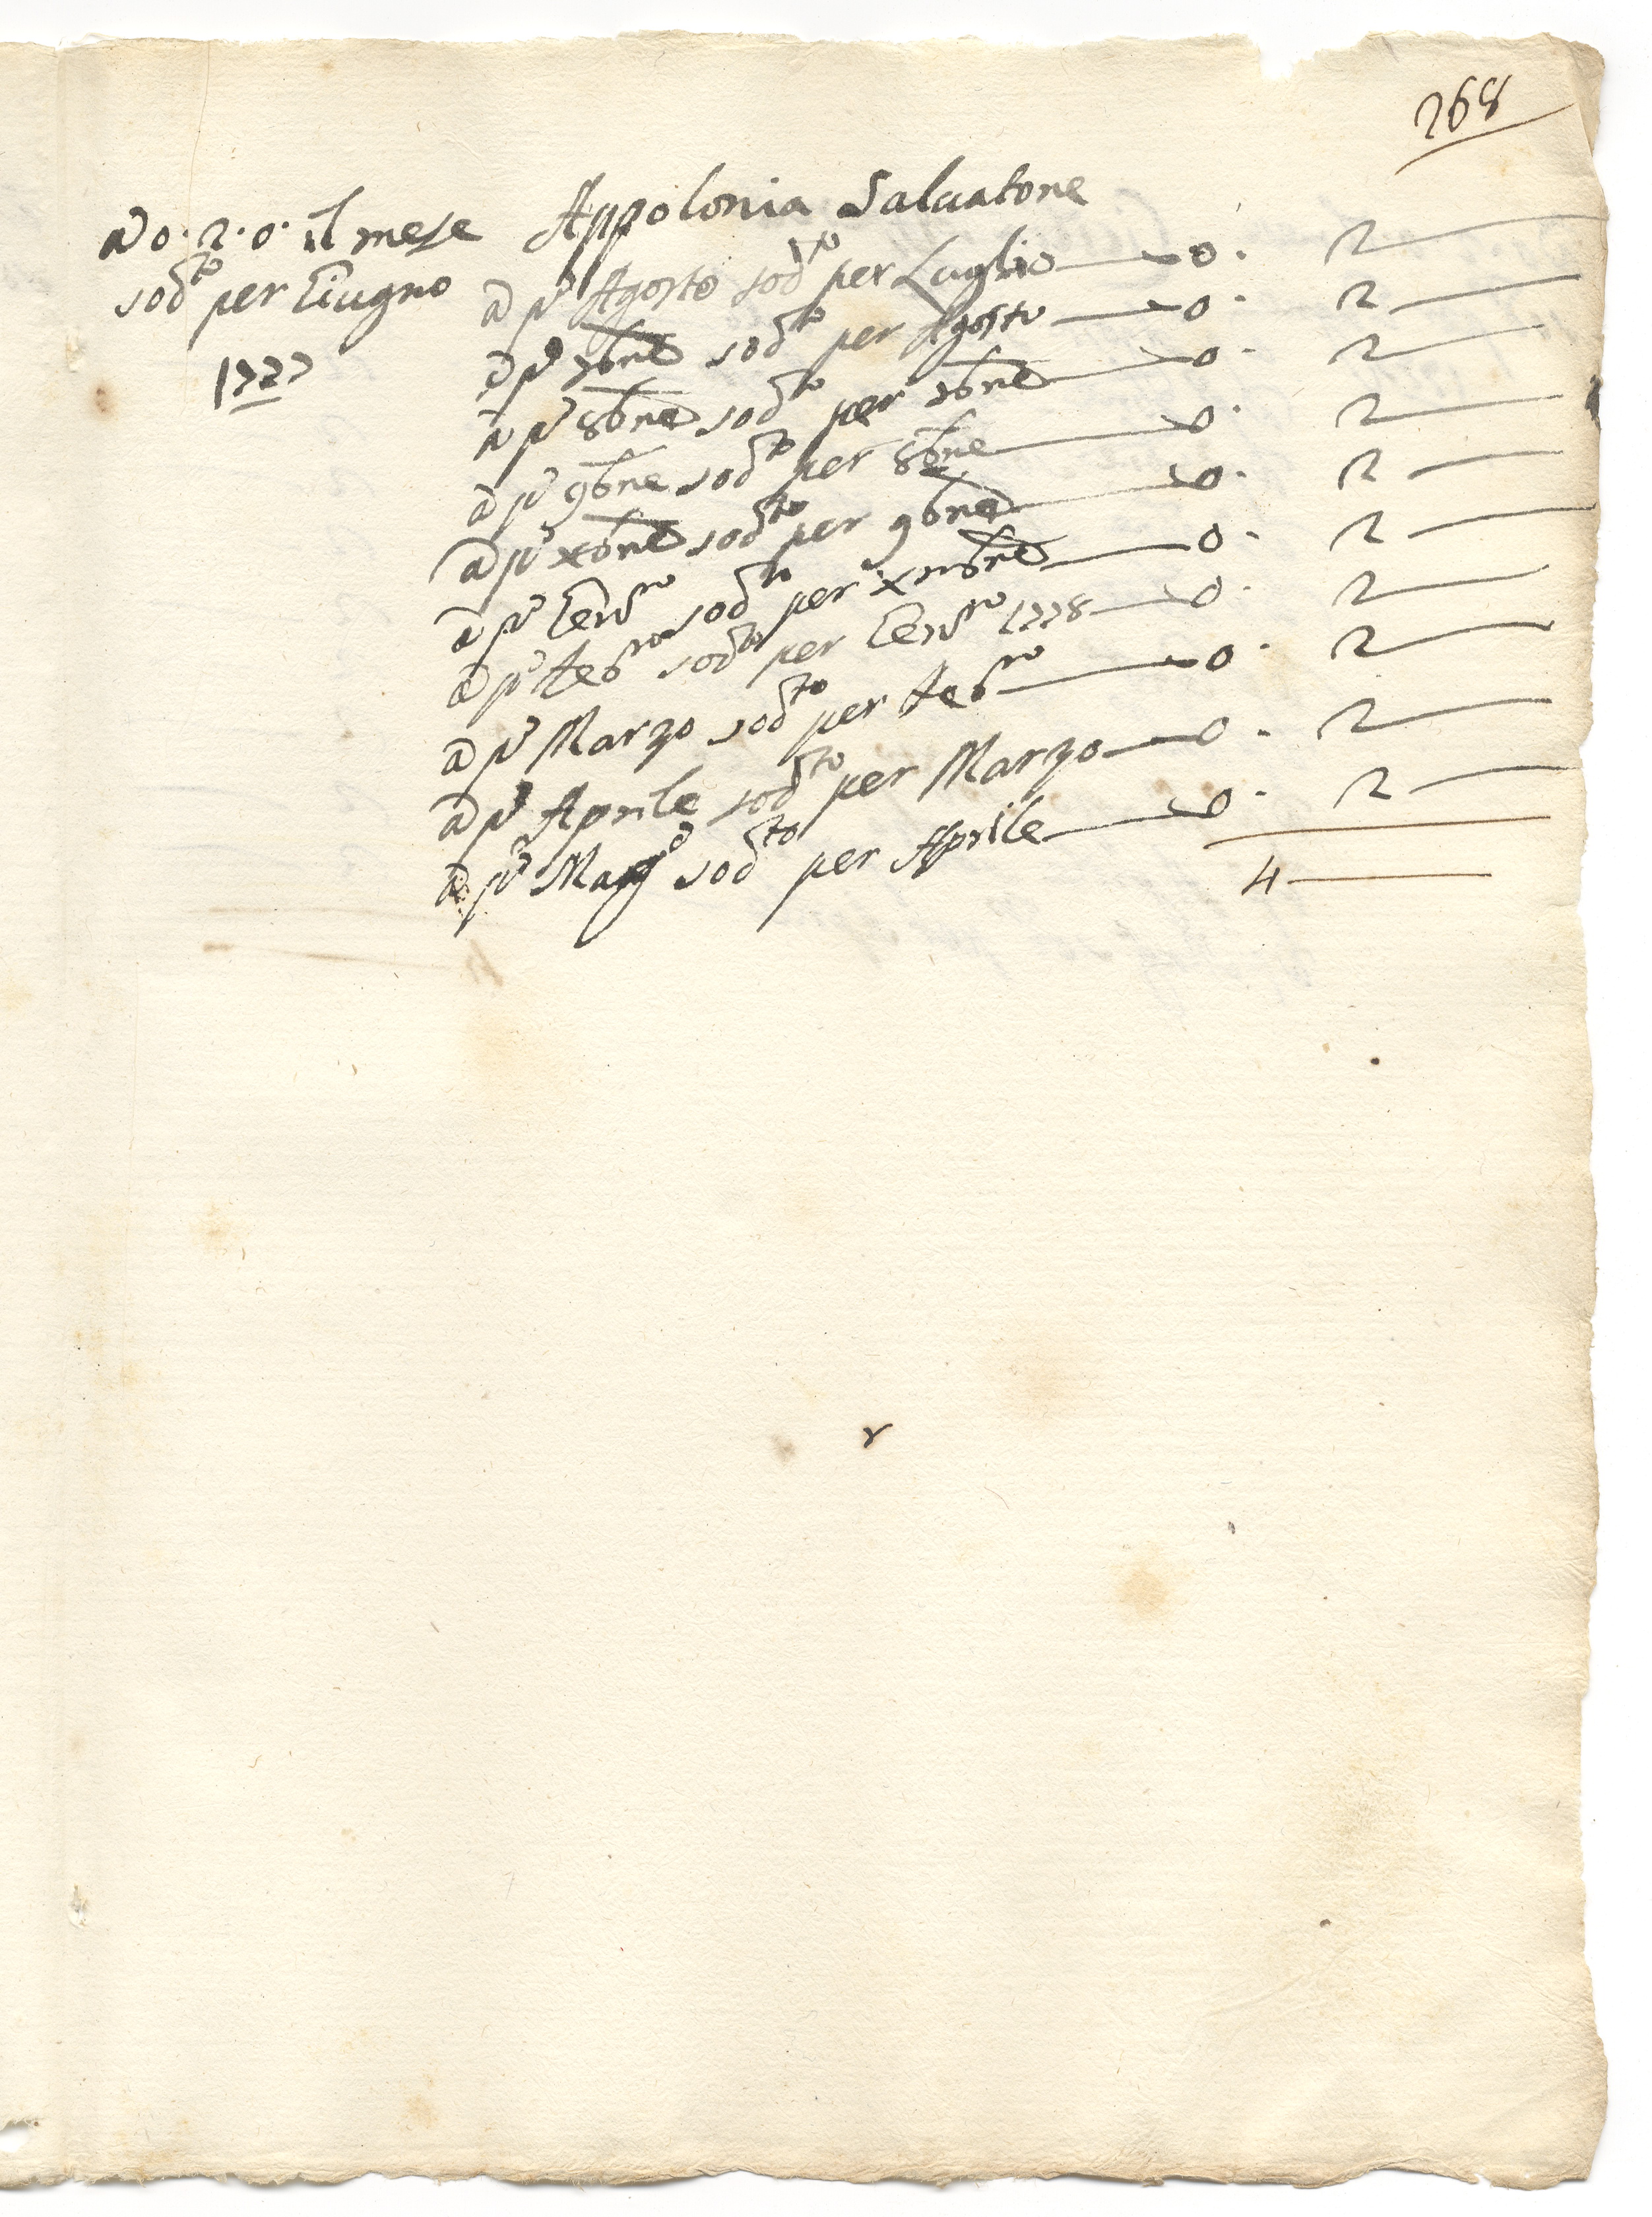 268
Appolonia Saluatore
a 0. 2. 0. il mese
sod.to per Giugno
1777
a p.o Agosto sod.to per Luglio — 0. 2 —
a p.o 7bre sod.to per Agosto — 0. 2 —
a p.o 8bre sod.to per 7bre — 0. 2 —
a p.o 9bre sod.to per 8bre — 0. 2 —
a p.o xbre sod.to per 9bre — 0. 2 —
a p.o Gen.ro sod.to per xmbre — 0. 2 —
a p.o feb.ro sod.to per Gen.ro 1778 — 0. 2 —
a p.o Marzo sod.to per feb.ro — 0. 2 —
a p.o Aprile sod.to per Marzo — 0. 2 —
a p.o Mag.o sod.to per Aprile — 0. 2 —
4 —